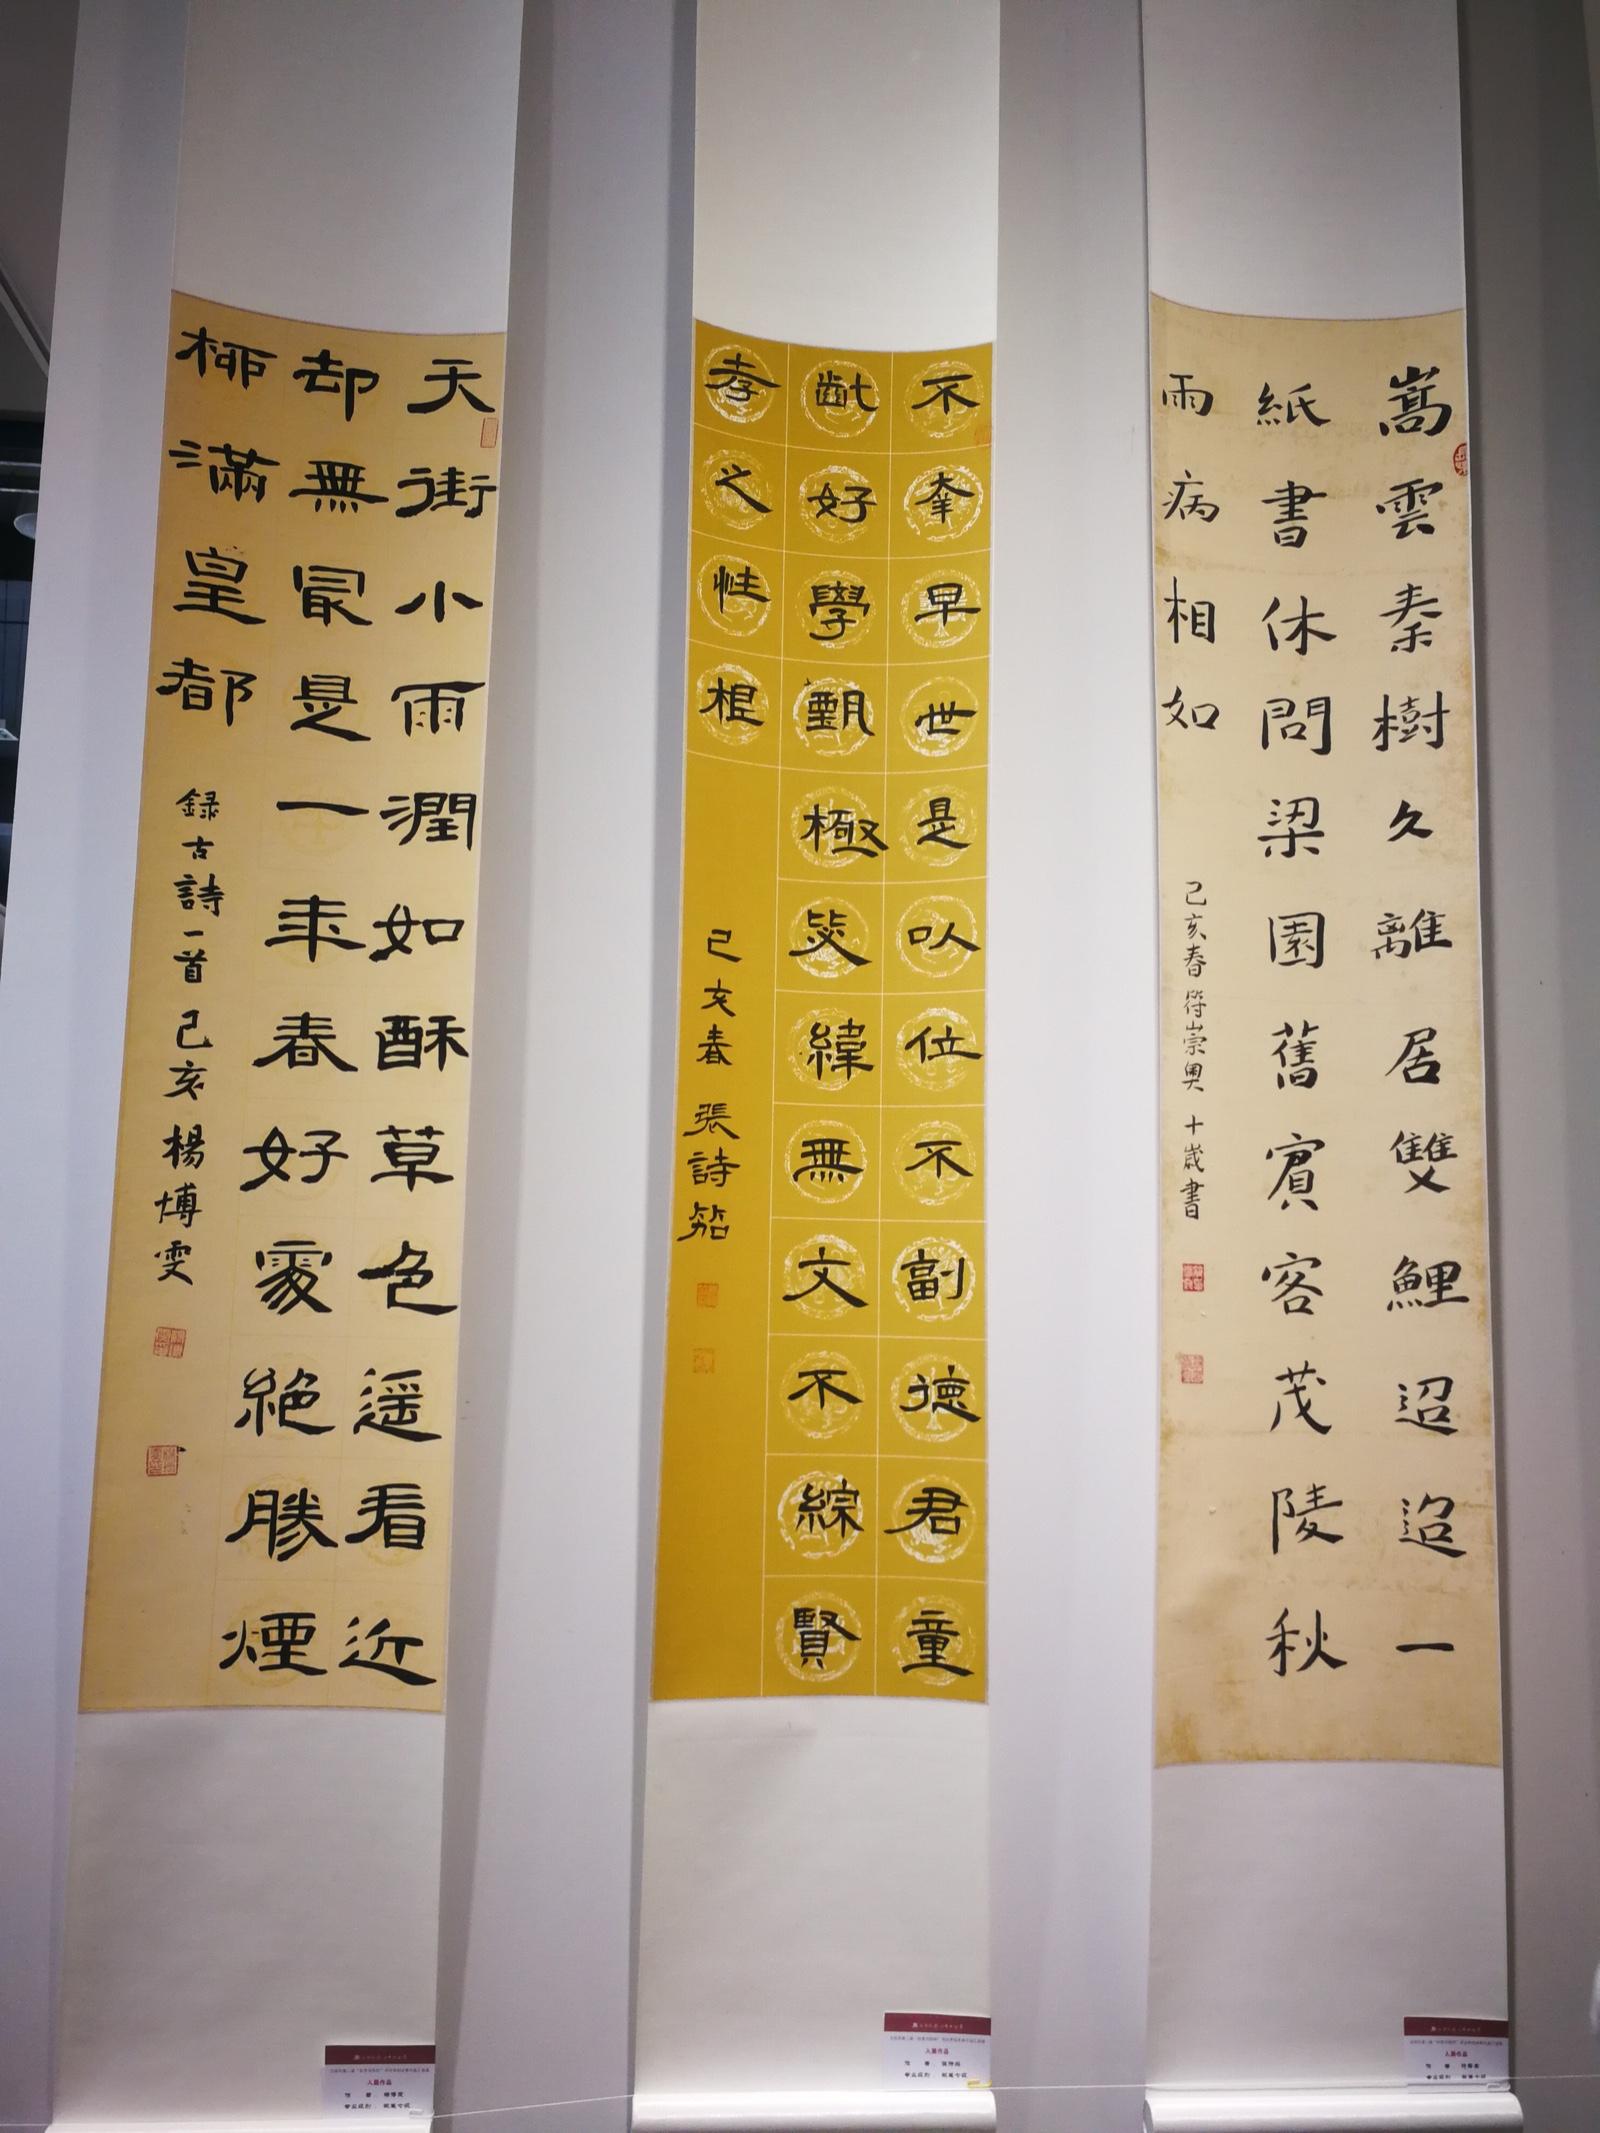 嵩雲秦樹久離居雙鯉迢迢一
紙書休問梁園舊賓客茂陵秋
雨病相如
己亥春符崇奧十歲書
不羣早世是以位不副德君童
齓好學甄極毖緯無文不綜賢
孝之性根
己亥春張詩
天街小雨潤如酥草色遥看近
却無最是一年春好處絶勝煙
柳滿皇都
録古詩一首己亥楊博雯
入展作品
入展作品
入展作品